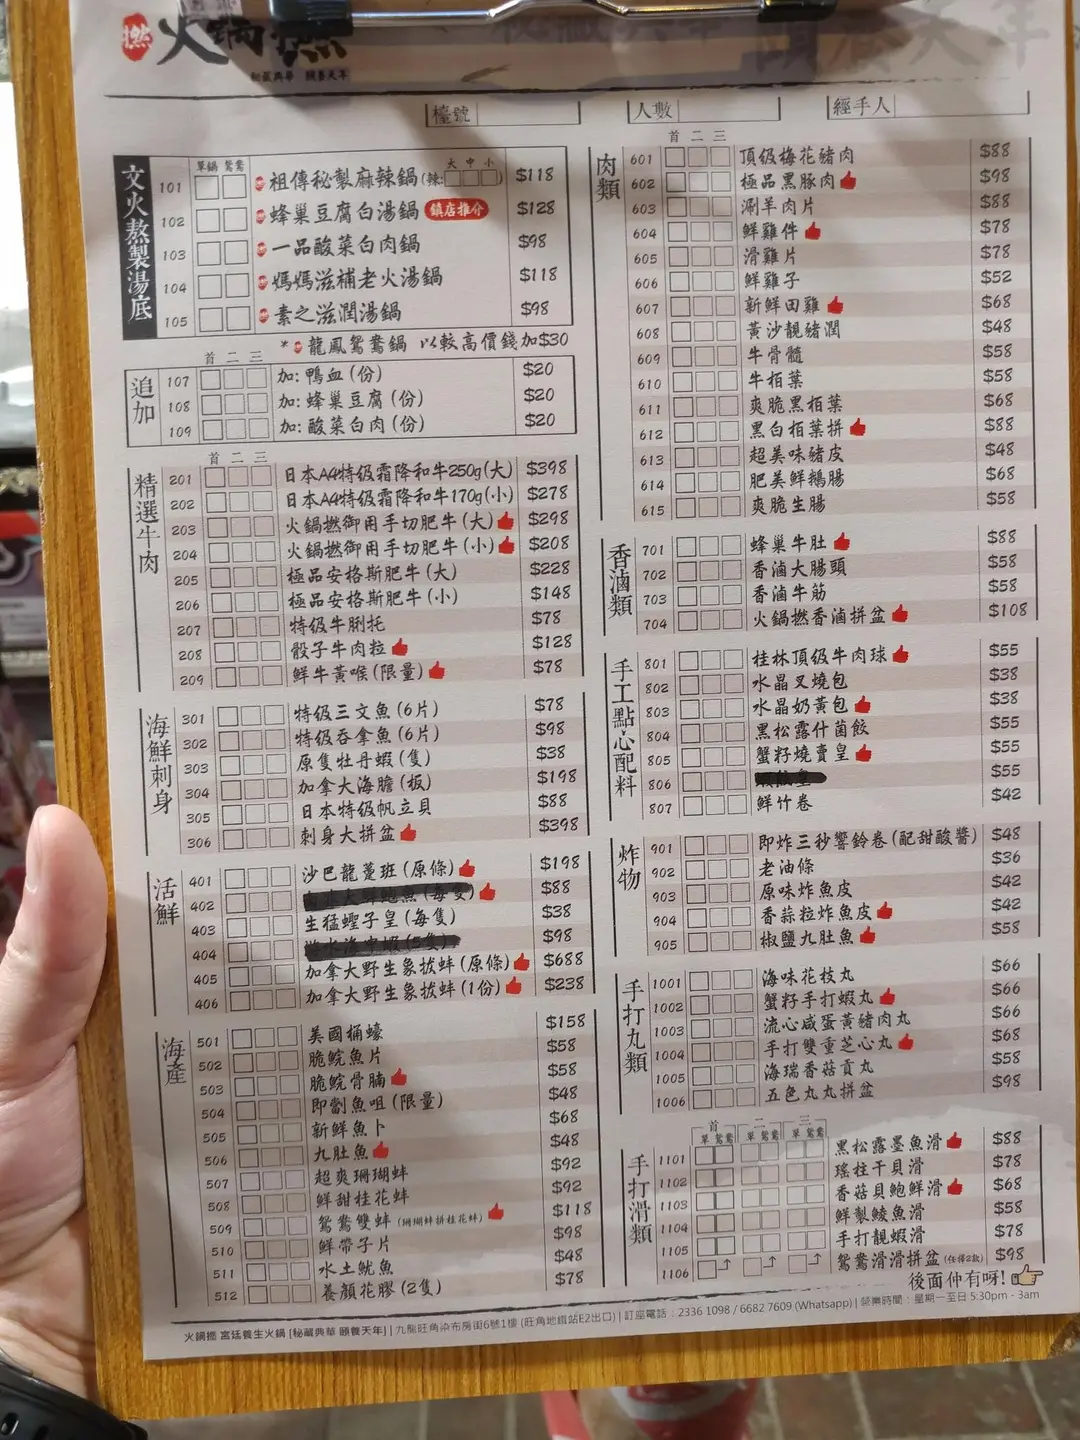 撚 火鍋撚
秘藏典華 頤養天年
檯號
人數
經手人
文火熬製湯底
單鍋 鴛鴦
大 中 小
101 祖傳秘製麻辣鍋(辣: $118
102 蜂巢豆腐白湯鍋 鎮店推介 $128
103 一品酸菜白肉鍋 $98
104 媽媽滋補老火湯鍋 $118
105 素之滋潤湯鍋 $98
* 龍鳳鴛鴦鍋 以較高價錢加$30
追加
首 二 三
107 加: 鴨血(份) $20
108 加: 蜂巢豆腐(份) $20
109 加: 酸菜白肉(份) $20
精選牛肉
首 二 三
201 日本A4特級霜降和牛250g(大) $398
202 日本A4特級霜降和牛170g(小) $278
203 火鍋撚御用手切肥牛(大) $298
204 火鍋撚御用手切肥牛(小) $208
205 極品安格斯肥牛(大) $228
206 極品安格斯肥牛(小) $148
207 特級牛脷托 $78
208 骰子牛肉粒 $128
209 鮮牛黃喉(限量) $78
海鮮刺身
301 特級三文魚(6片) $78
302 特級吞拿魚(6片) $98
303 原隻牡丹蝦(隻) $38
304 加拿大海膽(板) $198
305 日本特級帆立貝 $88
306 刺身大拼盆 $398
活鮮
401 沙巴龍躉班(原條) $198
402 $88
403 生猛蟶子皇(每隻) $38
404 $98
405 加拿大野生象拔蚌(原條) $688
406 加拿大野生象拔蚌(1份) $238
海產
501 美國桶蠔 $158
502 脆鯇魚片 $58
503 脆鯇骨腩 $58
504 即劏魚咀(限量) $48
505 新鮮魚卜 $68
506 九肚魚 $48
507 超爽珊瑚蚌 $92
508 鮮甜桂花蚌 $92
509 鴛鴦雙蚌(珊瑚蚌拼桂花蚌) $118
510 鮮帶子片 $98
511 水土魷魚 $48
512 養顏花膠(2隻) $78
肉類
首 二 三
601 頂級梅花豬肉 $88
602 極品黑豚肉 $98
603 涮羊肉片 $88
604 鮮雞件 $78
605 滑雞片 $78
606 鮮雞子 $52
607 新鮮田雞 $68
608 黃沙靚豬潤 $48
609 牛骨髓 $58
610 牛栢葉 $58
611 爽脆黑栢葉 $68
612 黑白栢葉拼 $88
613 超美味豬皮 $48
614 肥美鮮鵝腸 $68
615 爽脆生腸 $58
香滷類
701 蜂巢牛肚 $88
702 香滷大腸頭 $58
703 香滷牛筋 $58
704 火鍋撚香滷拼盆 $108
手工點心配料
801 桂林頂級牛肉球 $55
802 水晶叉燒包 $38
803 水晶奶黃包 $38
804 黑松露什菌餃 $55
805 蟹籽燒賣皇 $55
806 $55
807 鮮竹卷 $42
炸物
901 即炸三秒響鈴卷(配甜酸醬) $48
902 老油條 $36
903 原味炸魚皮 $42
904 香蒜粒炸魚皮 $42
905 椒鹽九肚魚 $58
手打丸類
1001 海味花枝丸 $66
1002 蟹籽手打蝦丸 $66
1003 流心咸蛋黃豬肉丸 $66
1004 手打雙重芝心丸 $68
1005 海瑞香菇貢丸 $58
1006 五色丸丸拼盆 $98
手打滑類
首 二 三
單 鴛鴦 單 鴛鴦 單 鴛鴦
1101 黑松露墨魚滑 $88
1102 瑤柱干貝滑 $78
1103 香菇貝鮑鮮滑 $68
1104 鮮製鯪魚滑 $58
1105 手打靚蝦滑 $78
1106 鴛鴦滑滑拼盆(任擇2款) $98
後面仲有呀!
火鍋撚 宮廷養生火鍋 [秘藏典華 頤養天年] | 九龍旺角染布房街6號1樓 (旺角地鐵站E2出口) | 訂座電話：2336 1098 / 6682 7609 (Whatsapp) | 營業時間：星期一至日 5:30pm - 3am